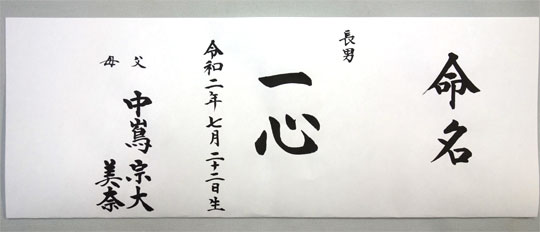 命名
長男
一心
令和二年七月二十二日生
父 中嶌宗大
母 美奈